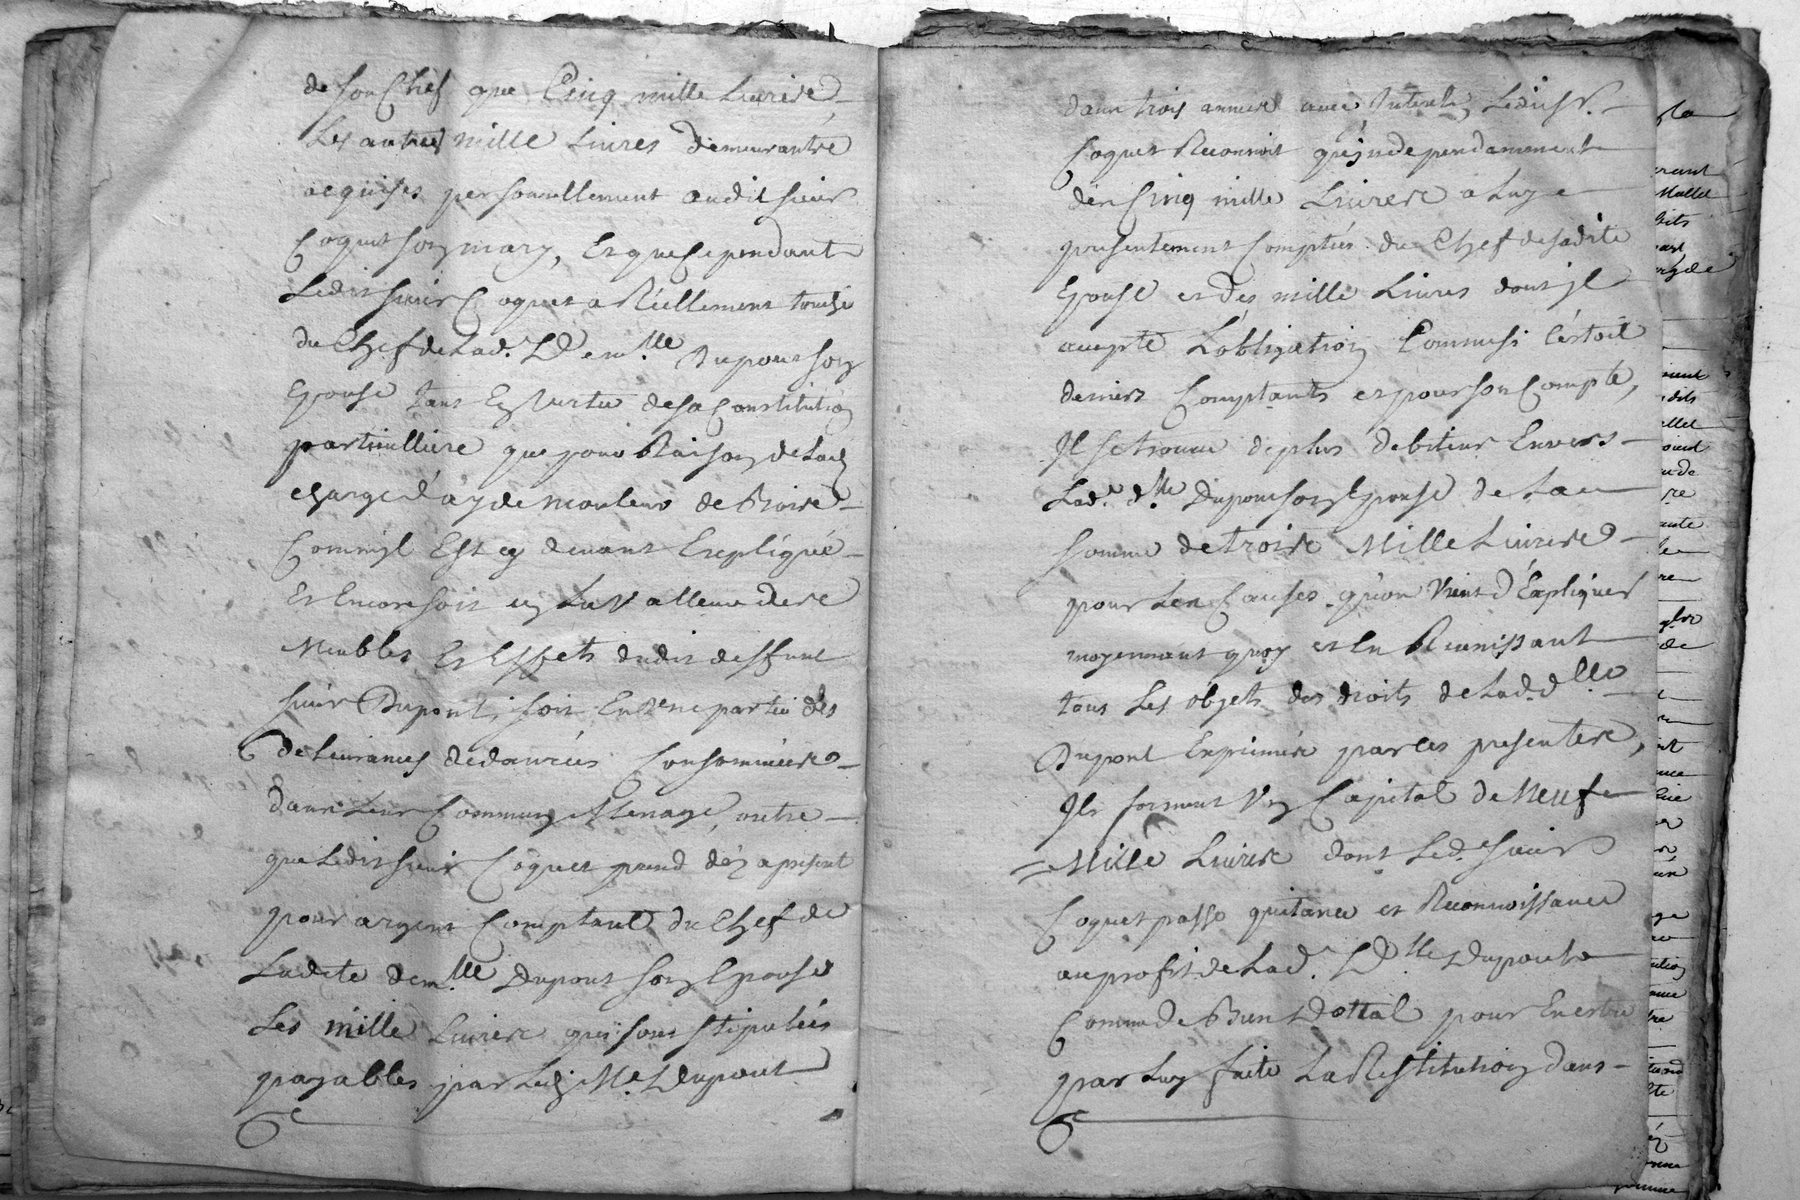 de son Chef que Cinq mille Livres
Les autres mille Livres demeurantes
acquises personnellement audit sieur
Coquet son mary, Et que Cependant
Ledit sieur Coquet a Réellement touché
du Chef de Lad. Dem.lle Dupont son
Epouse tant En Vertu de sa Constitution
particulliere que pour Raison de Lad
charge d'ayde mouleur de Bois
Comm'jl Est cy devant Expliqué
Et Encore soit en La Valleur des
Meubles Et Effets dudit deffunt
sieur Dupont, soit En partie des
delivrances de danrées Consommées
dans Leur Commun Menage, outre
que Ledit sieur Coquet prend déz apresent
pour argent Comptant du Chef de
Ladite dem.lle Dupont son Epouse
Les mille Livres qui sont stipulées
payables par Led. Me. Dupont
dans trois années avec Interets, Ledit Sr.
Coquet Reconnoit qu'independamment
des Cinq mille Livres a Luy
presentement Comptées du Chef de sadite
Epouse et des mille Livres dont jl
accepte L'obligation Comme si C'estoit
deniers Comptants et pour son Compte,
Il se trouve de plus debiteur Envers
Lad.e d.lle Dupont son Epouse de La
somme de trois Mille Livres
pour Les Causes qu'on Vient d'Expliquer
moyennant quoy et En Reunissant
tous Les objets des droits de Lad. d.lle
Dupont Exprimés par ces presentes,
Ils forment Un Capital de Neuf
Mille Livres dont Led. sieur
Coquet passe quitance et Reconnoissance
au profit de Lad. D.lle Dupont
Comme de Bien Dottal pour En estre
par Luy faite La Restitution dans